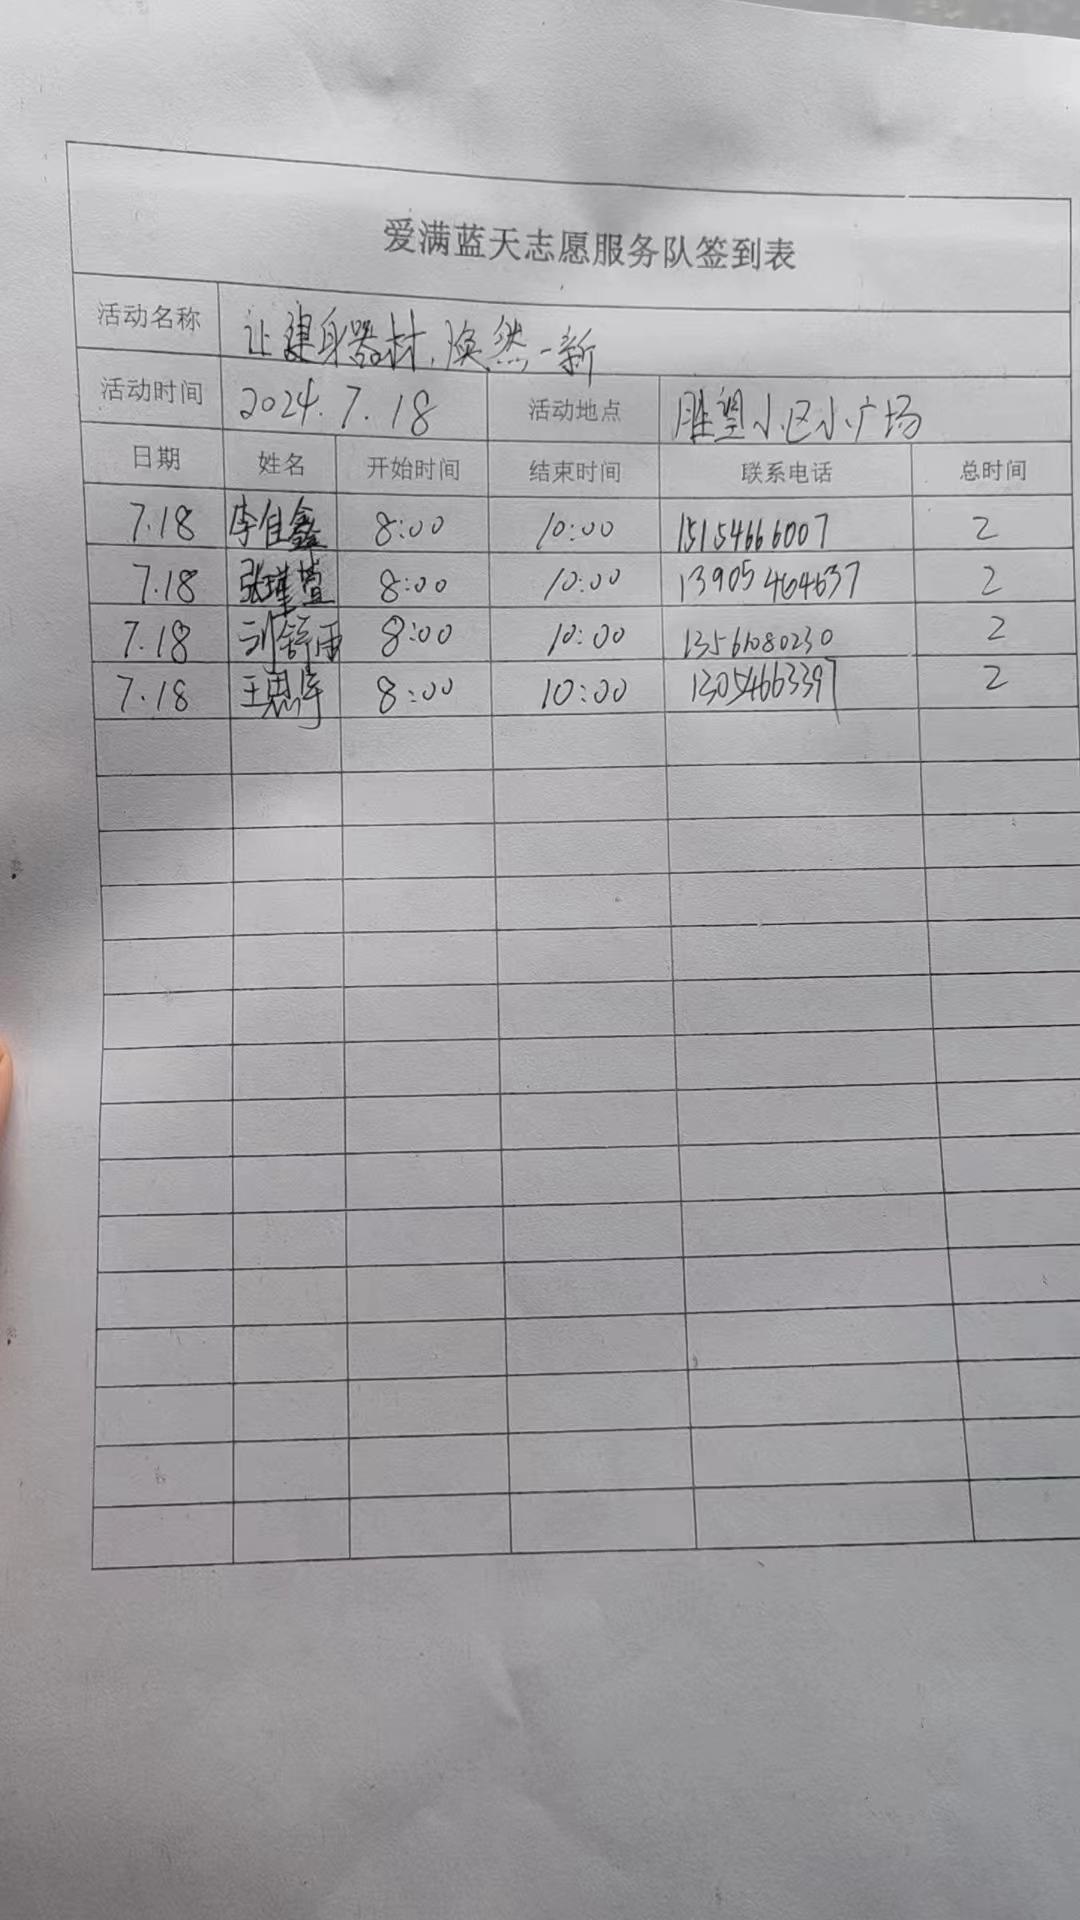 爱满蓝天志愿服务队签到表
活动名称 让建身器材，焕然一新
活动时间 2024.7.18 活动地点 胜望小区小广场
日期 姓名 开始时间 结束时间 联系电话 总时间
7.18 李佳鑫 8:00 10:00 15154666007 2
7.18 张瑾萱 8:00 10:00 13905464637 2
7.18 刘舒雨 8:00 10:00 13561080230 2
7.18 王思宇 8:00 10:00 13054663397 2